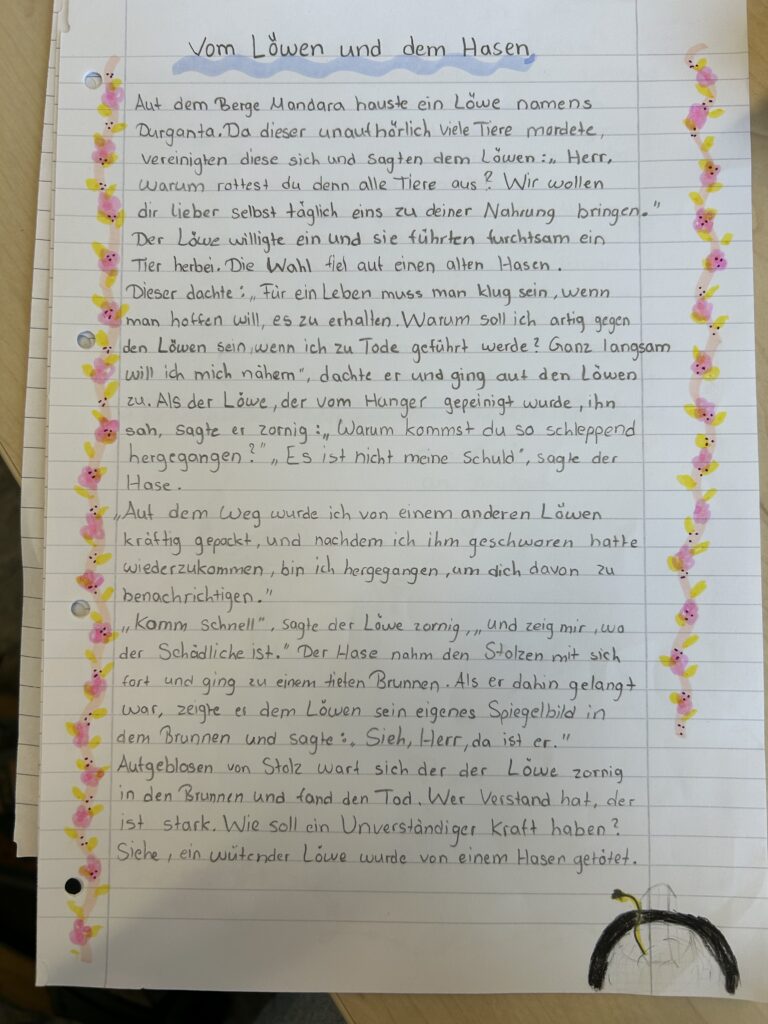 Vom Löwen und dem Hasen
Auf dem Berge Mandara hauste ein Löwe namens
Durganta. Da dieser unaufhörlich viele Tiere mordete,
vereinigten diese sich und sagten dem Löwen: „Herr,
warum rottest du denn alle Tiere aus? Wir wollen
dir lieber selbst täglich eins zu deiner Nahrung bringen."
Der Löwe willigte ein und sie führten furchtsam ein
Tier herbei. Die Wahl fiel auf einen alten Hasen.
Dieser dachte: „Für ein Leben muss man klug sein, wenn
man hoffen will, es zu erhallen. Warum soll ich artig gegen
den Löwen sein, wenn ich zu Tode geführt werde? Ganz langsam
will ich mich nähern", dachte er und ging auf den Löwen
zu. Als der Löwe, der vom Hunger gepeinigt wurde, ihn
sah, sagte er zornig: „Warum kommst du so schleppend
hergegangen?" „Es ist nicht meine Schuld", sagte der
Hase.
„Auf dem Weg wurde ich von einem anderen Löwen
kräftig gepackt, und nachdem ich ihm geschworen hatte
wiederzukommen, bin ich hergegangen, um dich davon zu
benachrichtigen."
„Komm schnell", sagte der Löwe zornig, „und zeig mir, wo
der Schädliche ist." Der Hase nahm den Stolzen mit sich
fort und ging zu einem tiefen Brunnen. Als er dahin gelangt
war, zeigte er dem Löwen sein eigenes Spiegelbild in
dem Brunnen und sagte: „Sieh, Herr, da ist er."
Aufgeblasen von Stolz warf sich der der Löwe zornig
in den Brunnen und fand den Tod. Wer Verstand hat, der
ist stark. Wie soll ein Unverständiger Kraft haben?
Siehe, ein wütender Löwe wurde von einem Hasen getötet.